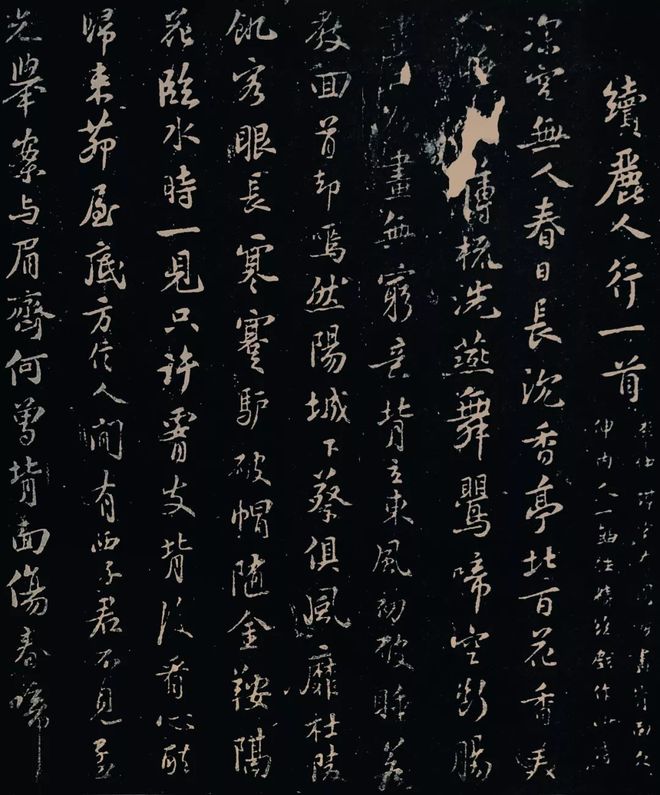 續麗人行一首
李仲謀家有周昉畫背面欠
伸內人一軸極精戲作此詩
深宮無人春日長沉香亭北百花香美
人睡薄梳洗燕舞鸎啼空斷腸
畫工畫無窮意背立東風初破睡若
教回首却嫣然陽城下蔡俱風靡杜陵
飢客眼長寒蹇驢破帽隨金鞍隔
花臨水時一見只許腰支背後看心醉
歸來茆屋底方信人間有西子君不見孟
光舉案与眉齊何曾背面傷春啼